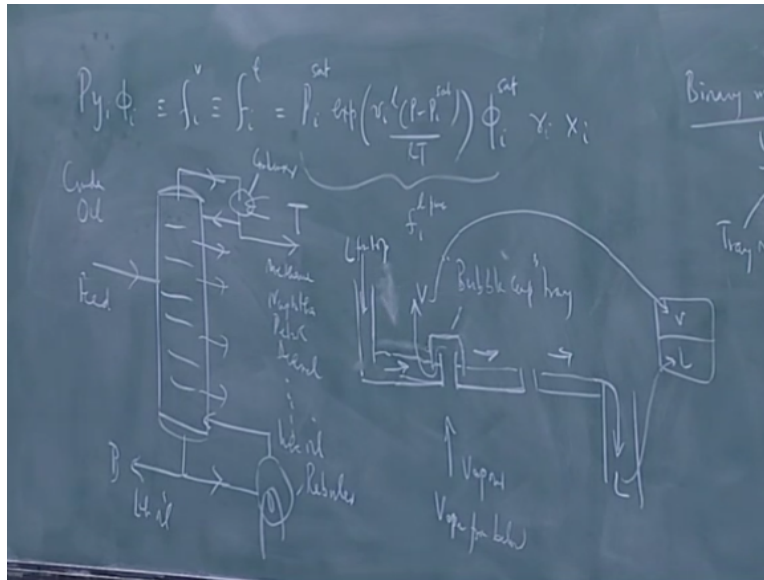 P y_i ϕ_i ≡ f_i^v ≡ f_i^l = P_i^sat exp(v_i^l (P-P_i^sat) / RT) ϕ_i^sat γ_i x_i
f_i^l pure
Crude
Oil
Condenser
T
Feed
Methane
Naphtha
Petrol
Diesel
Lube oil
B
Lube oil
Reboiler
L from top
V
"Bubble cap" tray
Vapour
Vapor from below
L
V
L
Binary
Tray